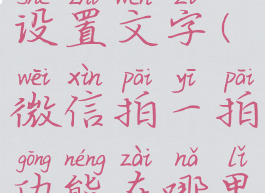 shè zhì wén zì
设置文字(
wēi xìn pāi yī pāi
微信拍一拍
gōng néng zài nǎ lǐ
功能在哪里